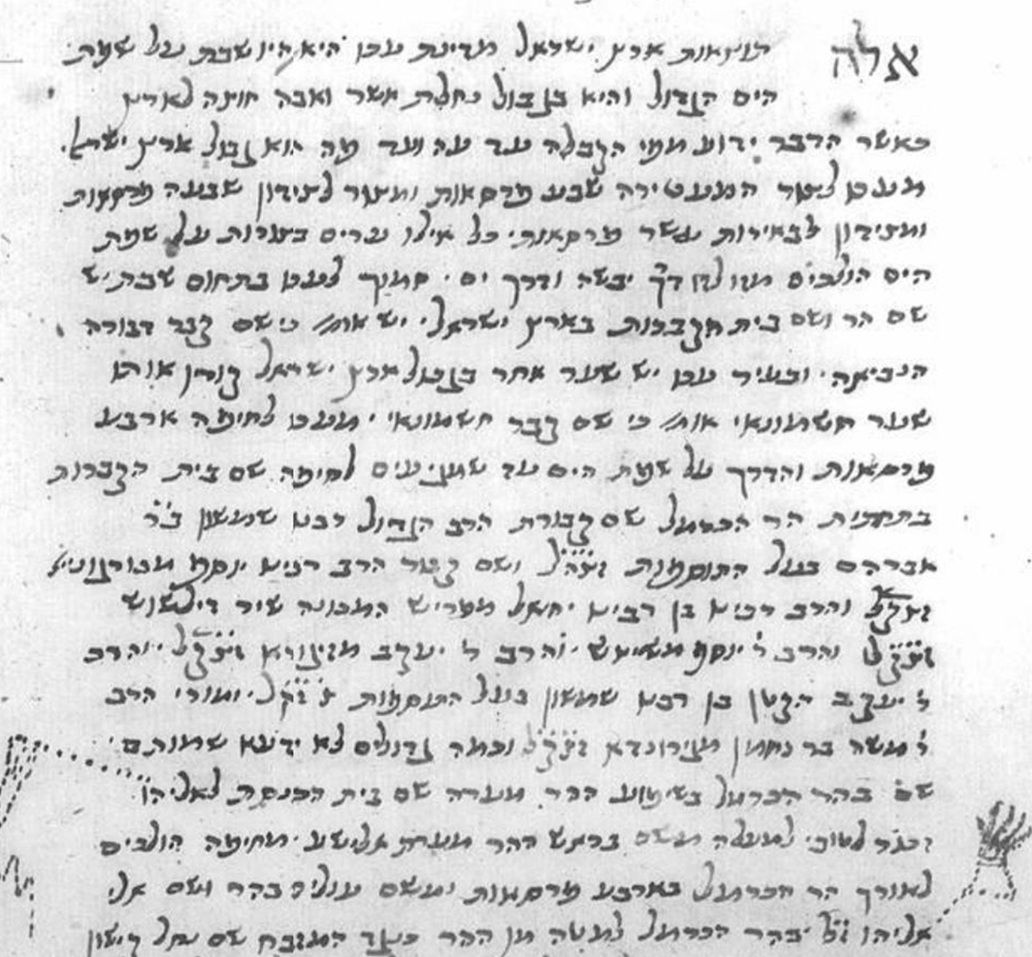 אלה תוצאות ארץ ישראל מדינת עכו היא היושבת על שפת
הים הגדול והיא בגבול נחלת אשר ואבה חונה לארץ
כאשר הדבר ידוע מפי הקבלה עד עד מה הוא גבול ארץ ישראל.
מעכו לצור המעטירה שבע פרסאות ומצור לצידון שבעה פרסאות
ומצידון לבאירות עשר פרסאות כל אילו ערים בצורות על שפת
הים הולכים מזו לזו דרך יבשה ודרך ים סמוך לעכו בתחום שבת יש
שם הר ושם בית הקברות בארץ ישראל יש אומ' כי שם קבר דבורה
הנביאה ובעיר עכו יש שער אחר בגבול ארץ ישראל קורין אותו
שער חשמונאי אומ' כי שם קבר חשמונאי מעכו לחיפה ארבע
פרסאות והדרך על שפת הים עד שמגיעים לחיפה שם בית הקברות
בתחתית הר הכרמל שם קבורת הרב הגדול רבינו שמשון ב"ר
אברהם בעל התוספות זצ"ל ושם קבור הרב רבינו יוסף מבורגוניא
זצק"ל והרב רבינו בן רבינו יחיאל מפריש המכונה שיר דילשוש
זצק"ל והרב ר' יוסף והרב ר' יעקב זצק"ל והרב
ר' יעקב הקטן בן רבינו שמשון בעל התוספות זצק"ל ומורי הרב
ר' משה בר נחמן מגירונדא זצק"ל וכמה גדולים לא ידענא שמותם
שם בהר הכרמל בשיפוע ההר מערה שם בית הכנסת לאליהו
זכור לטוב למעלה משם בראש ההר מערת אלישע מחיפה הולכים
לאורך הר הכרמל כארבע פרסאות ומשם עולים בהר ושם
אליהו ז"ל בהר הכרמל למטה מן ההר כנגד המזבח שם נחל קישון